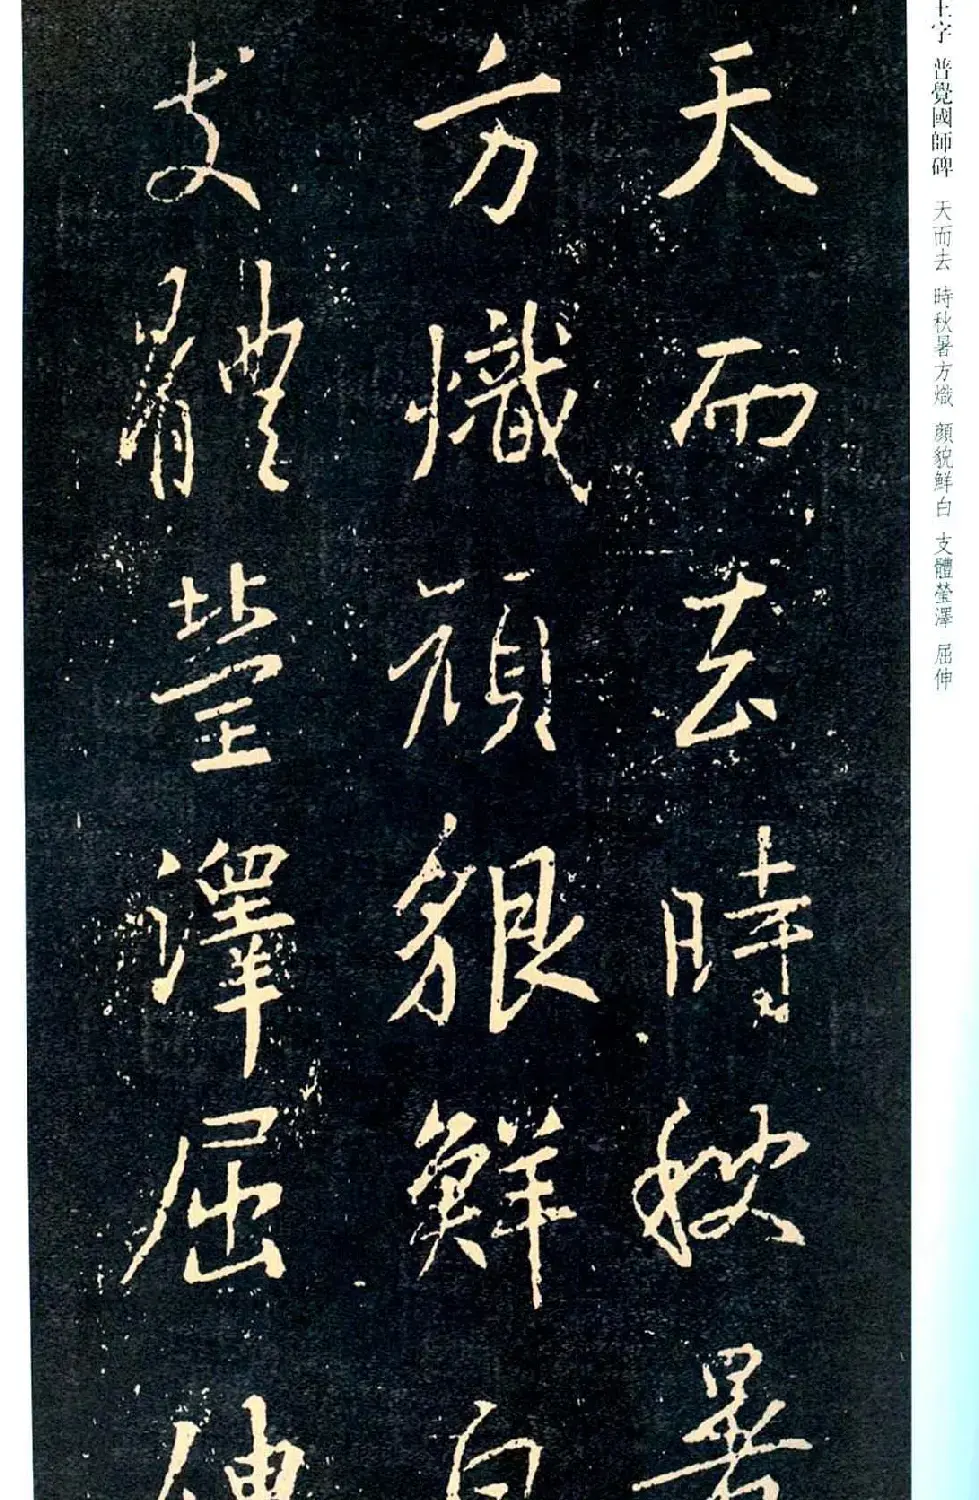 王字 普覺國師碑 天而去 時秋暑方熾 顔貌鮮白 支體瑩澤 屈伸
天而去時秋暑
方熾顔貌鮮白
支體瑩澤屈伸